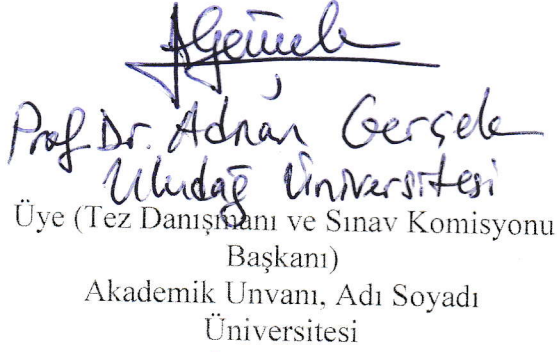 Prof. Dr. Adnan Gerçek
Uludağ Üniversitesi
Üye (Tez Danışmanı ve Sınav Komisyonu
Başkanı)
Akademik Unvanı, Adı Soyadı
Üniversitesi